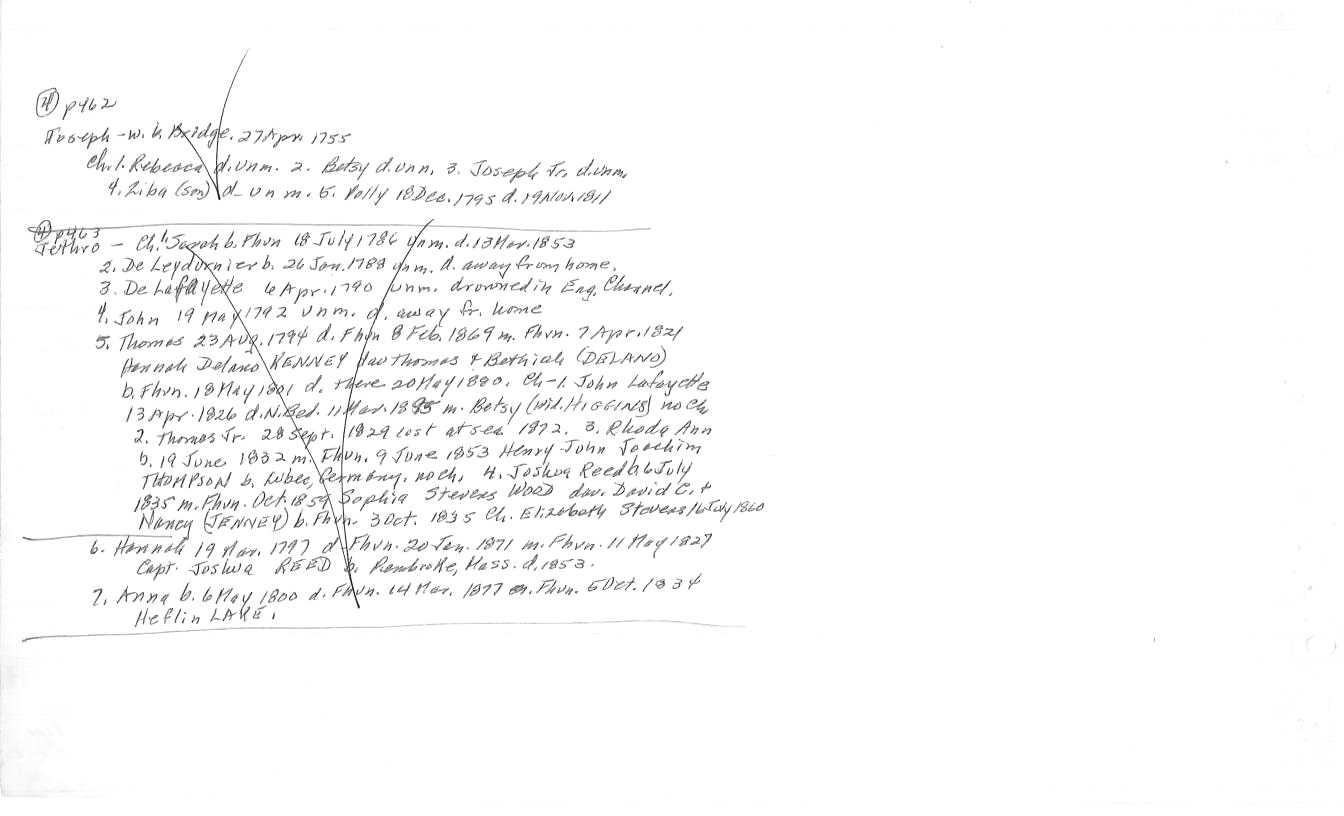 ④ p462
Joseph - W. b. Bridge. 27 Apr. 1755
Ch. 1. Rebecca d. unm. 2. Betsy d. unm. 3. Joseph Jr. d. unm.
4. Ziba (son) d. unm. 5. Polly 18 Dec. 1795 d. 19 Nov. 1811
④ p463
Jethro - Ch. 1. Sarah b. Fhvn 18 July 1786 unm. d. 13 Mar. 1853
2. De Leydurnier b. 26 Jan. 1788 unm. d. away from home.
3. De Lafayette 6 Apr. 1790 unm. drowned in Eng. Channel.
4. John 19 May 1792 unm. d. away fr. home
5. Thomas 23 Aug. 1794 d. Fhvn 8 Feb. 1869 m. Fhvn. 7 Apr. 1821
Hannah Delano KENNEY dau Thomas + Bethiah (DELANO)
b. Fhvn. 18 May 1801 d. there 20 May 1880. Ch-1. John Lafayette
13 Apr. 1826 d. N. Bed. 11 Mar. 1895 m. Betsy (wid. HIGGINS) no ch
2. Thomas Jr. 28 Sept. 1829 lost at sea 1872. 3. Rhoda Ann
b. 19 June 1832 m. Fhvn. 9 June 1853 Henry John Joachim
THOMPSON b. Lubec, Germany. no ch. 4. Joshua Reed b. 6 July
1835 m. Fhvn. Oct. 1859 Sophia Stevens WOOD dau. David C. +
Nancy (JENNEY) b. Fhvn. 3 Oct. 1835 Ch. Elizabeth Stevens 16 July 1860
6. Hannah 19 Mar. 1797 d. Fhvn. 20 Jan. 1871 m. Fhvn. 11 May 1827
Capt. Joshua REED b. Pembroke, Mass. d. 1853.
7. Anna b. 6 May 1800 d. Fhvn. 14 Mar. 1877 m. Fhvn. 5 Oct. 1834
Heflin LAKE.